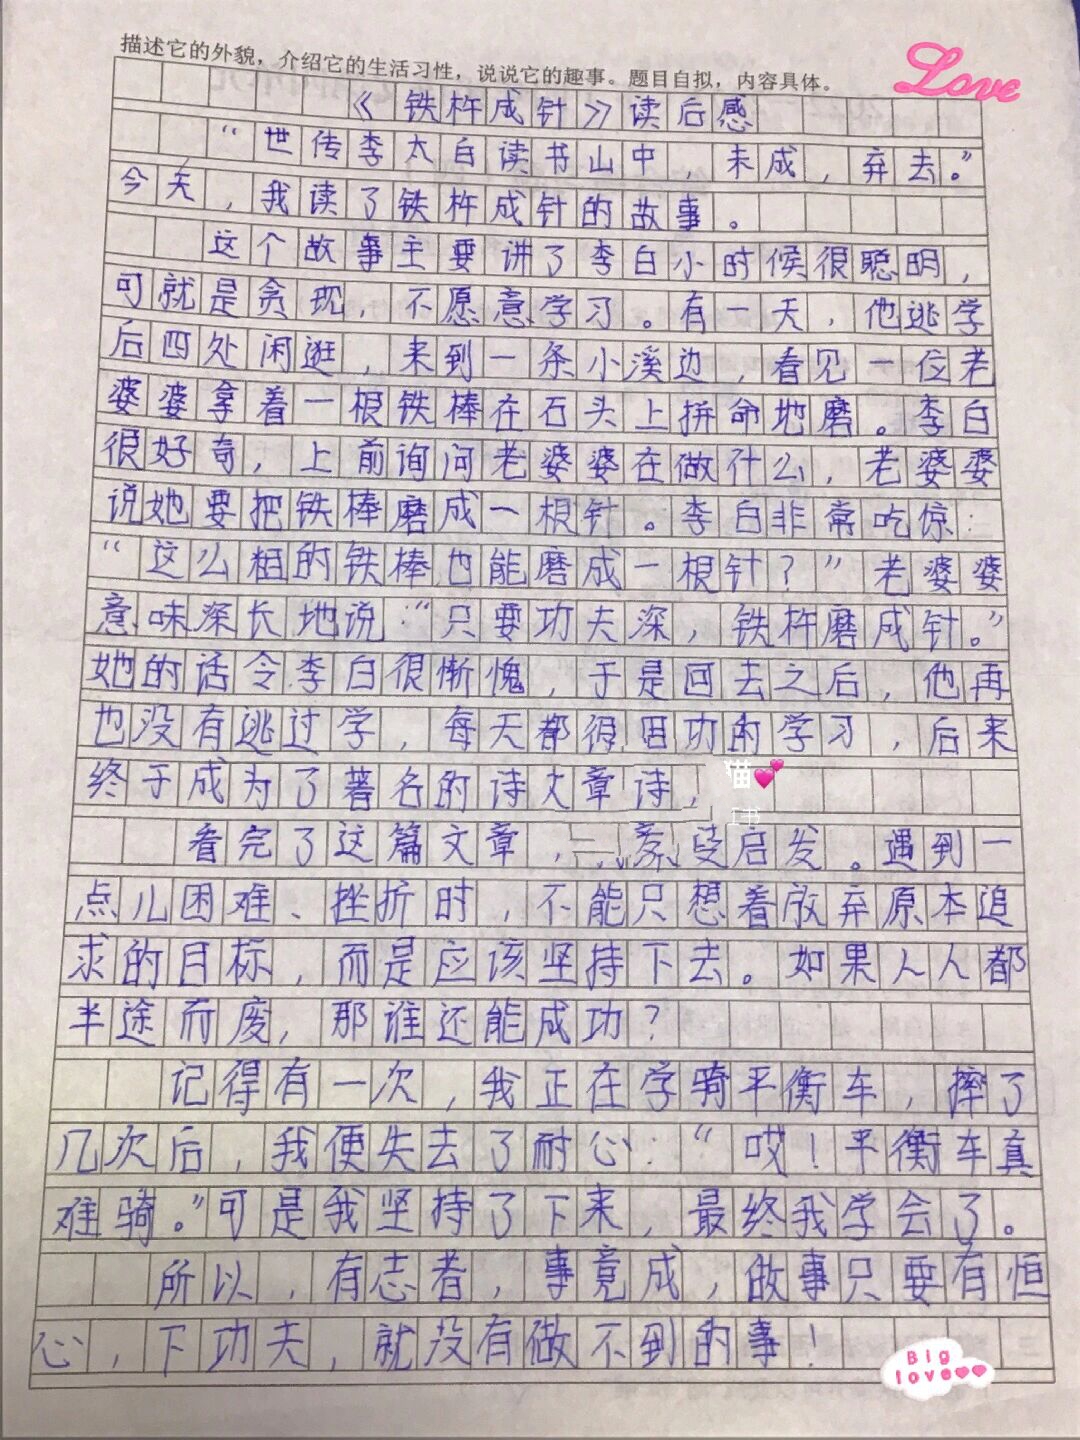 描述它的外貌，介绍它的生活习性，说说它的趣事。题目自拟，内容具体。
Love
《铁杵成针》读后感
“世传李太白读书山中，未成，弃去。”
今天，我读了铁杵成针的故事。
这个故事主要讲了李白小时候很聪明，
可就是贪现，不愿意学习。有一天，他逃学
后四处闲逛，来到一条小溪边，看见一位老
婆婆拿着一根铁棒在石头上拼命地磨。李白
很好奇，上前询问老婆婆在做什么，老婆婆
说她要把铁棒磨成一根针。李白非常吃惊：
“这么粗的铁棒也能磨成一根针？”老婆婆
意味深长地说：“只要功夫深，铁杵磨成针。”
她的话令李白很惭愧，于是回去之后，他再
也没有逃过学，每天都很用功的学习，后来
终于成为了著名的诗文章诗，
猫
看完了这篇文章，受启发。遇到一
点儿困难、挫折时，不能只想着放弃原本追
求的目标，而是应该坚持下去。如果人人都
半途而废，那谁还能成功？
记得有一次，我正在学骑平衡车，摔了
几次后，我便失去了耐心：“哎！平衡车真
难骑。”可是我坚持了下来，最终我学会了。
所以，有志者，事竟成，做事只要有恒
心，下功夫，就没有做不到的事！
Big
love